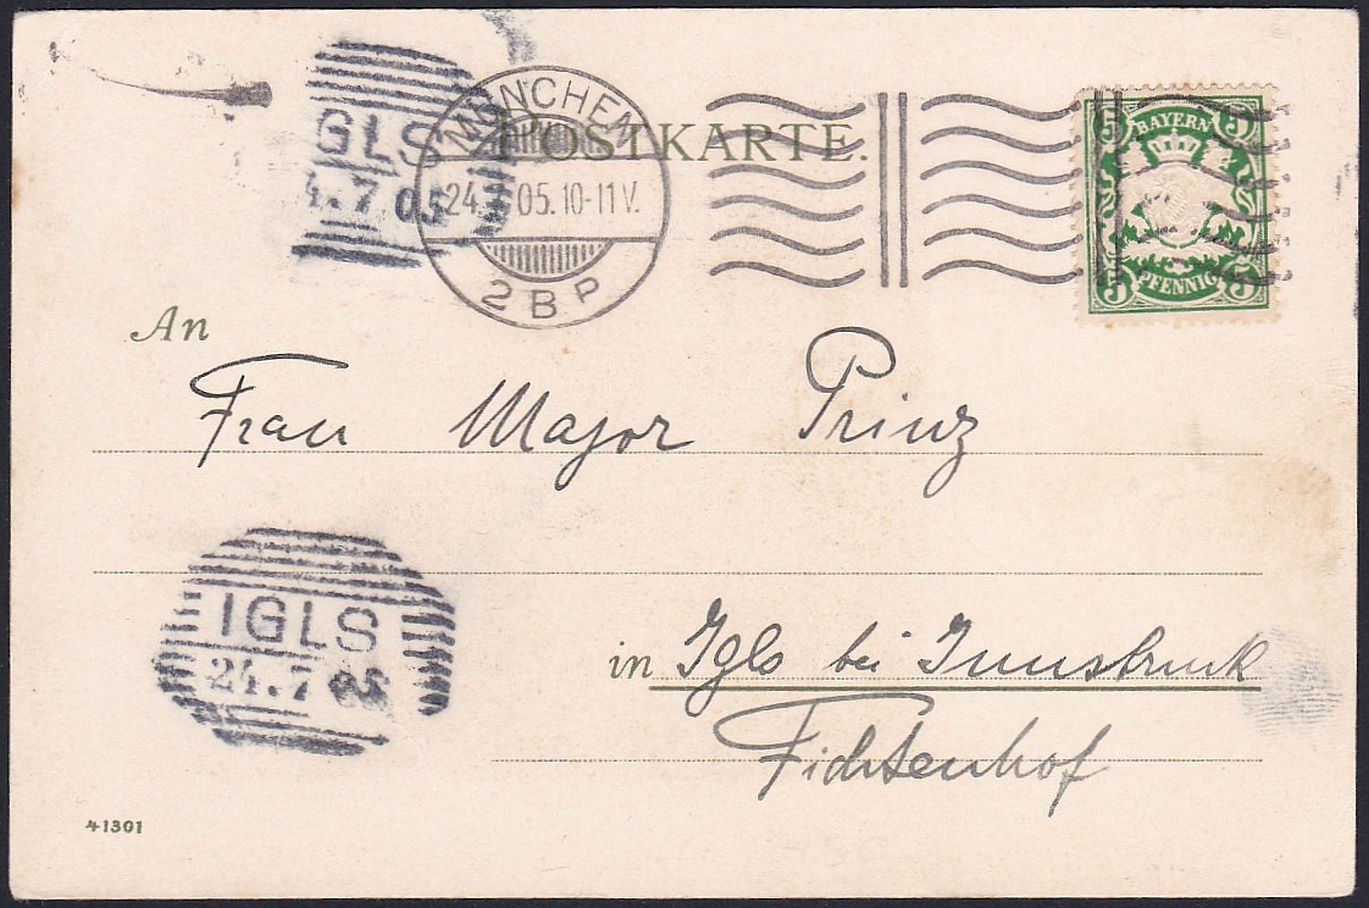 POSTKARTE.
MÜNCHEN
24. 05. 10-11 V.
2 B P
IGLS
4.7 05
5 BAYERN 5
5 PFENNIG 5
An
Frau Major Prinz
IGLS
24.7 05
in Igls bei Innsbruck
Fichtenhof
41301